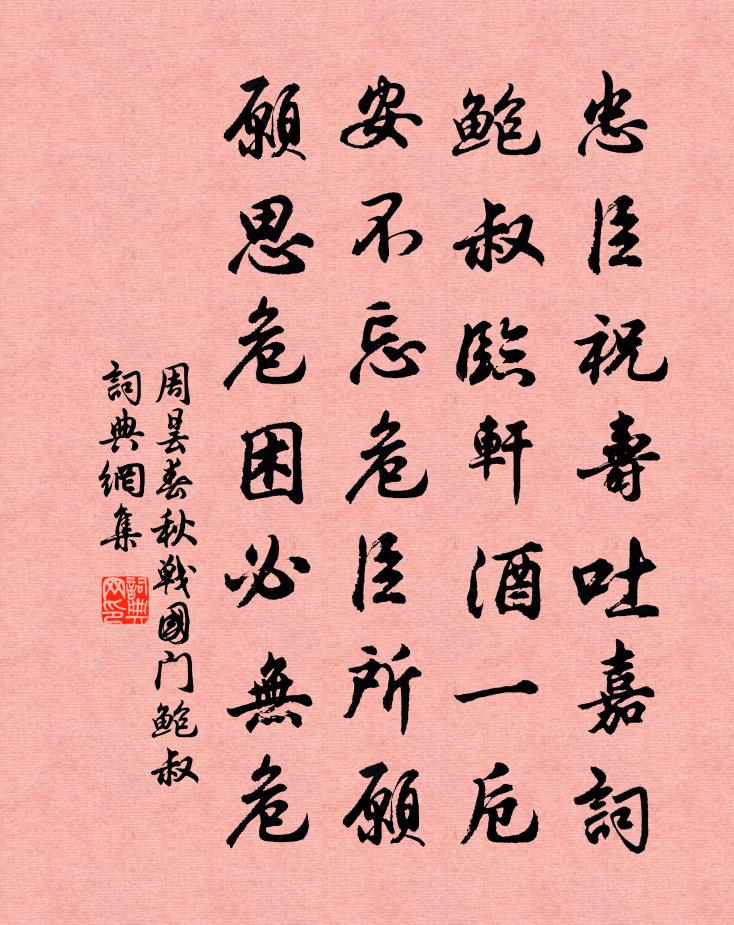 忠臣祝壽吐嘉詞
鮑叔臨軒酒一卮
安不忘危臣所願
願思危困必無危
周昙春秋戰國門鮑叔
詞典網集
詞典
网印